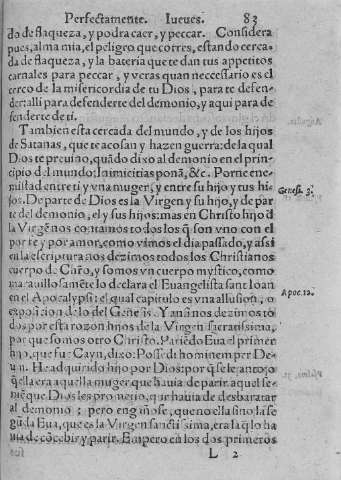 Perfectamente. Iueves. 83
do de flaqueza, y podra caer, y peccar. Considera
pues, alma mia, el peligro que corres, estando cerca-
da de flaqueza, y la bateria que te dan tus appetitos
carnales para peccar, y veras quan neccessario es el
cerco de la misericordia de tu Dios, para te defen-
der: alli para defenderte del demonio, y aqui para de
fenderte de ti.
Tambien esta cercada del mundo, y de los hijos
de Satanas, que te acosan y hazen guerra: de la qual
Dios te preuino, quãdo dixo al demonio en el prin-
cipio del mundo: Inimicitias ponã, &c. Porne ene-
mistad entre ti y vna muger, y entre su hijo y tus hi-
jos. De parte de Dios es la Virgen y su hijo, y de par
te del demonio, el y sus hijos: mas en Christo hijo d̃
la Virgẽ nos contamos todos los q̃ son vno con el
por fe y por amor, como vimos el dia passado, y assi
en la escriptura nos dezimos todos los Christianos
cuerpo de Chr̃o, y somos vn cuerpo mystico, como
marauillosamẽte lo declara el Euangelista sant Ioan
en el Apocalypsi: el qual capitulo es vna allusion, o
exposicion de lo del Genesis. Y ansi nos dezimos to
dos por esta razon hijos de la Virgen sacratissima,
por que somos otro Christo. Pariẽdo Eua el primer
hijo, que fue Cayn, dixo: Possedi hominem per De-
um. He adquirido hijo por Dios: por q̃ se le antojo
q̃ ella era aquella muger que hauia de parir aquel se-
mẽ que Dios les prometio, que hauia de desbaratar
al demonio; pero engañose, que no ella sino la se
gũda Eua, que es la Virgen sanctissima, era la q̃ lo ha
uia de cõcebir y parir. Empero en los dos primeros
L 2
Genes. 3.
Apoc. 12.